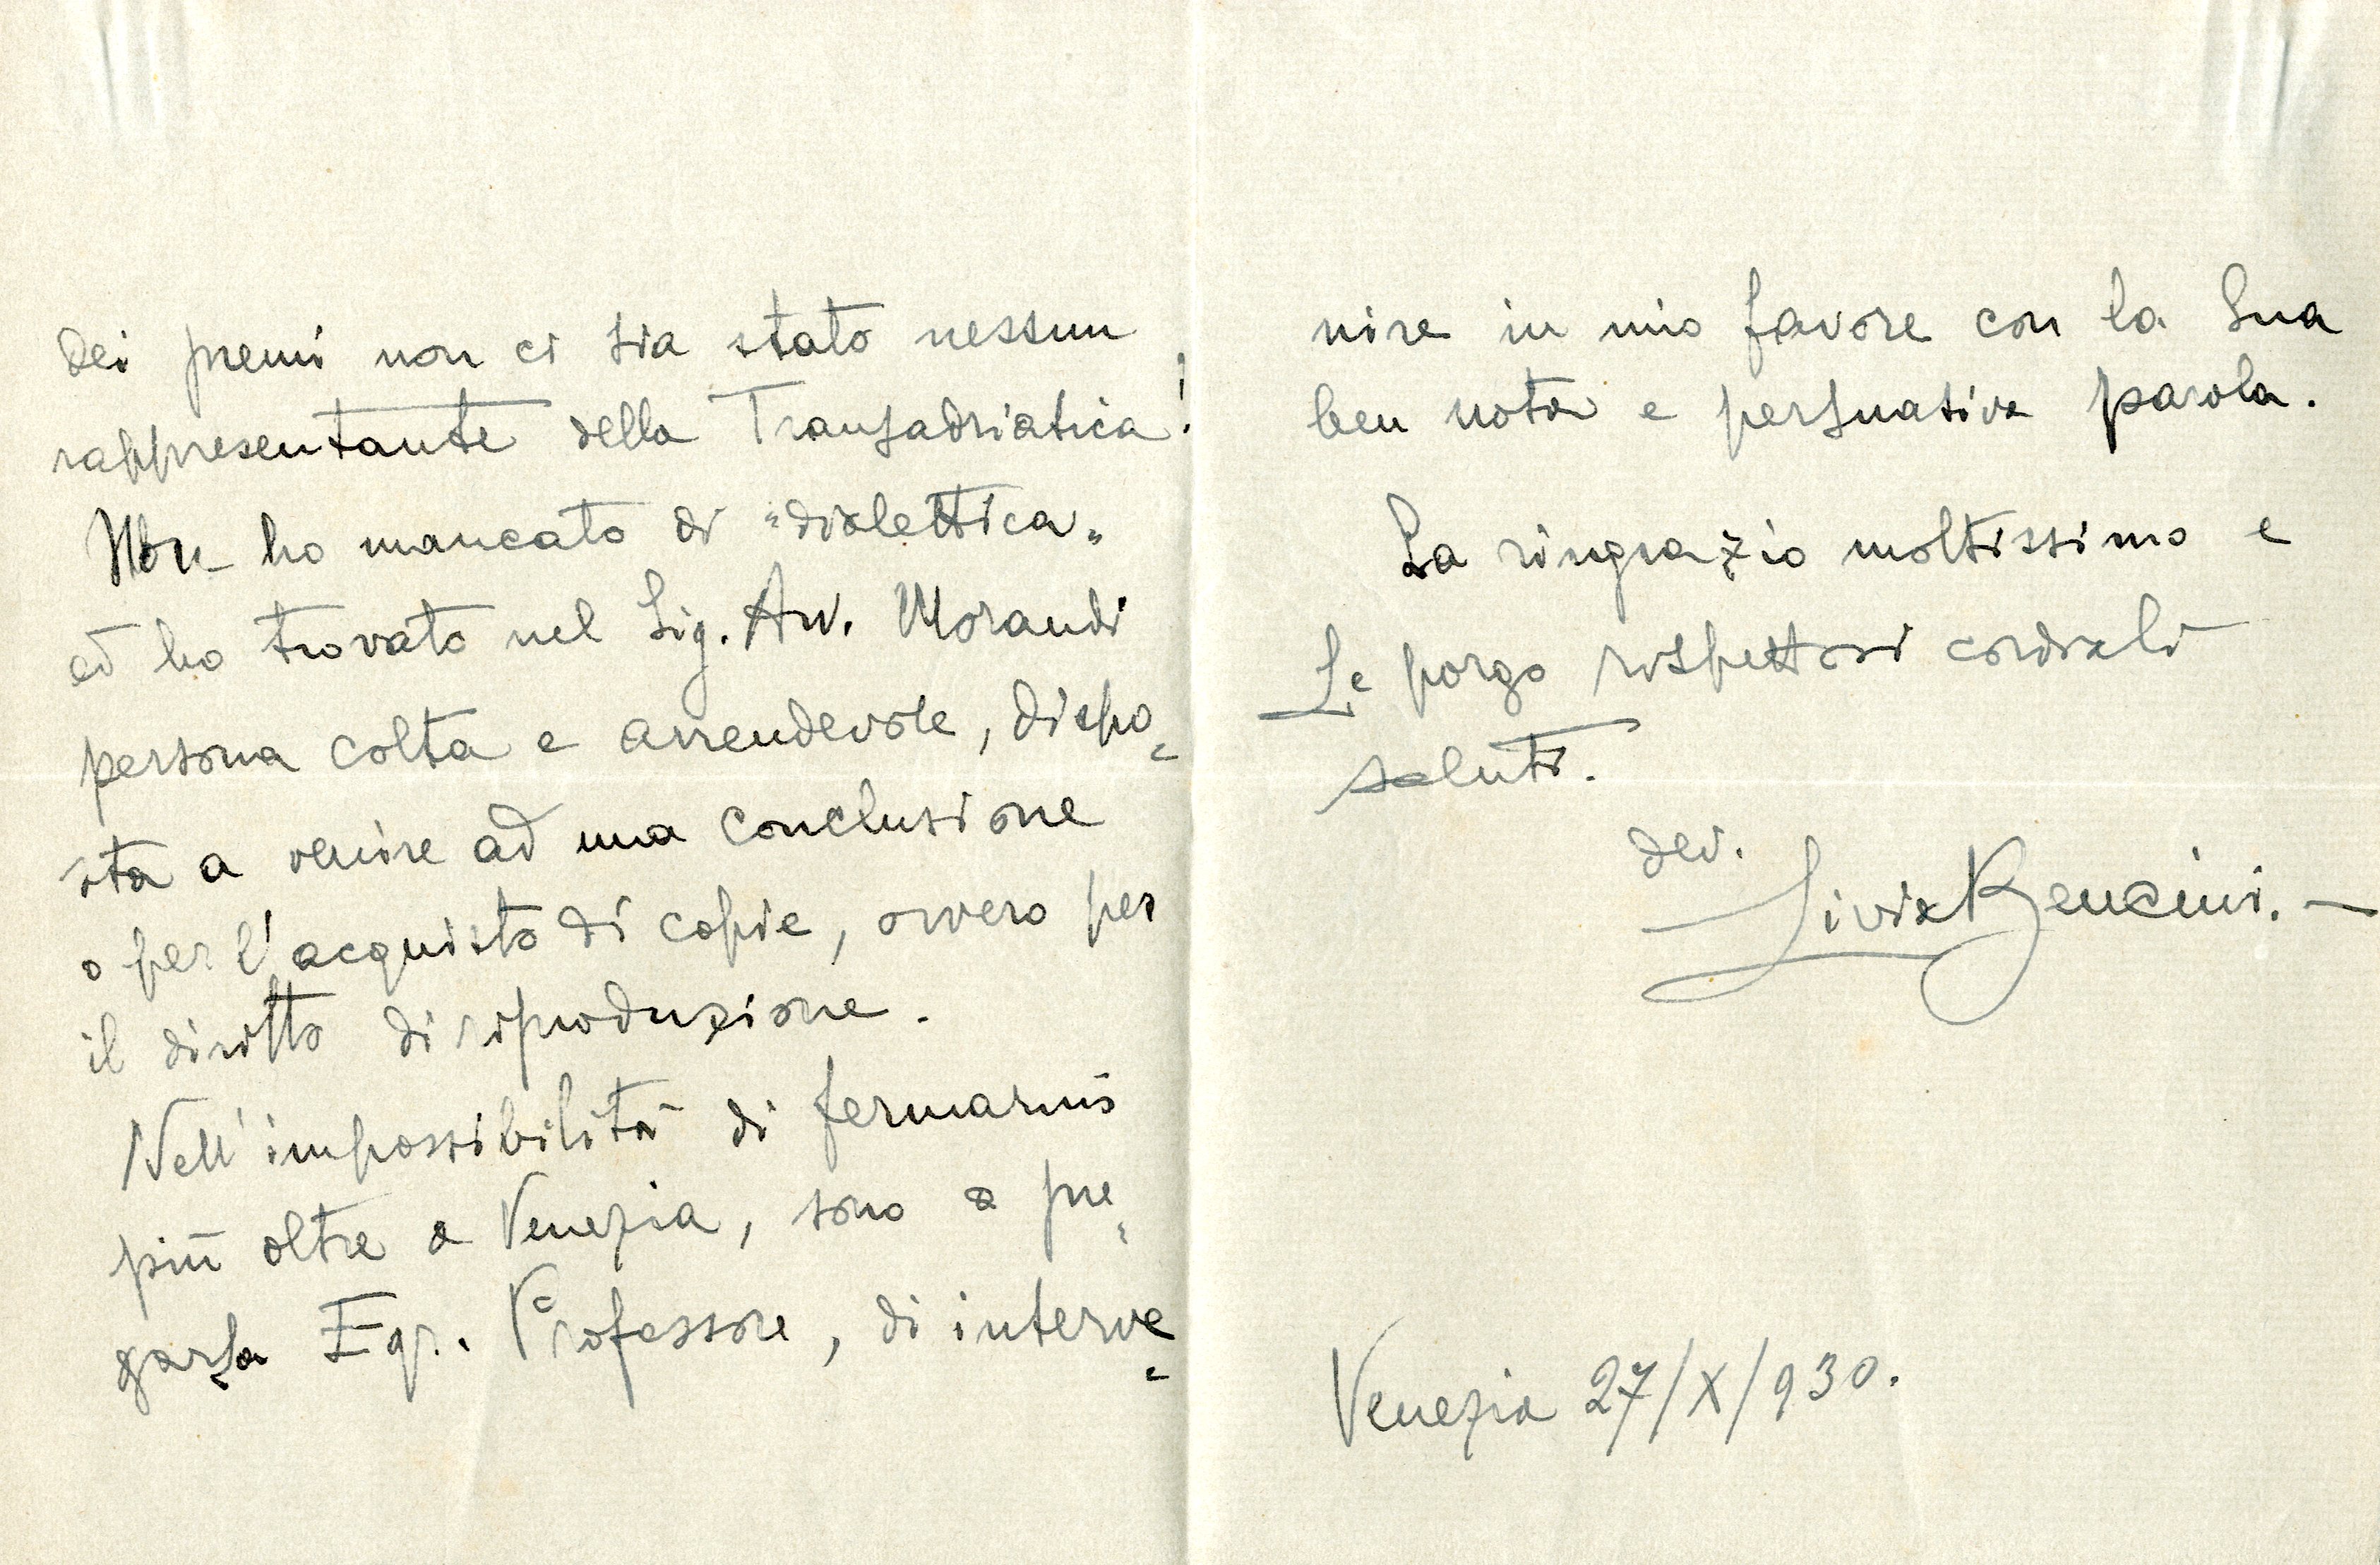 dei premi non ci sia stato nessun
rappresentante della Transadriatica!
Non ho mancato di "dialettica"
ed ho trovato nel Sig. Avv. Morandi
persona colta e arrendevole, dispo=
sta a venire ad una conclusione
o per l'acquisto di copie, ovvero per
il diritto di riproduzione.
Nell'impossibilità di fermarmi
più oltre a Venezia, sono a pre=
garLa Egr. Professore, di interve=
nire in mio favore con la Sua
ben nota e persuasiva parola.
La ringrazio moltissimo e
Le porgo rispettosi cordiali
saluti.
dev.
Livia Bencini. —
Venezia 27/X/930.